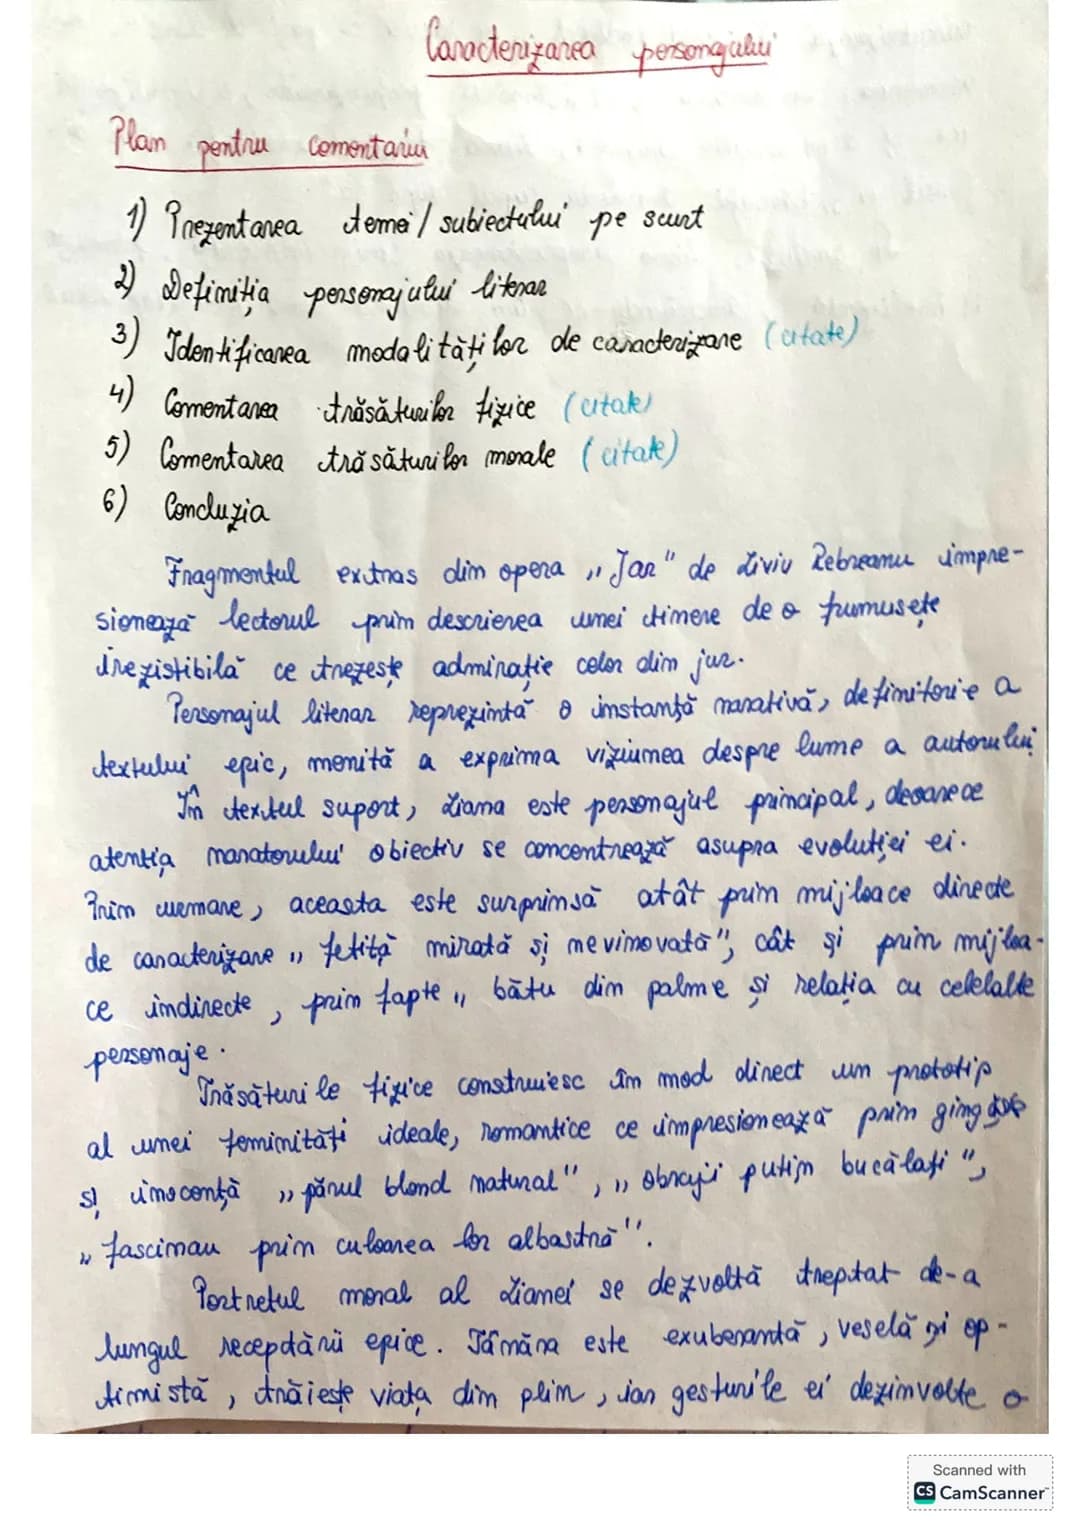 Caracterizarea personajului
Plan pentru comentariu
1) Prezentarea temei / subiectului pe scurt
2) Definiția personajului literar
3) Identificarea modalităților de caracterizare (citate)
4) Comentarea trăsăturilor fizice (citate)
5) Comentarea trăsăturilor morale (citate)
6) Concluzia
Fragmentul extras din opera „Jar" de Liviu Rebreanu impre-
sionează lectorul prin descrierea unei tinere de o frumusețe
irezistibilă ce trezește admirație celor din jur.
Personajul literar reprezintă o instanță narativă, definitorie a
textului epic, menită a exprima viziunea despre lume a autorului
În textul suport, Liana este personajul principal, deoarece
atenția naratorului obiectiv se concentrează asupra evoluției ei.
Prin urmare, aceasta este surprinsă atât prin mijloace directe
de caracterizare „ fetiță mirată și nevinovată", cât și prin mijloa-
ce indirecte, prin fapte „ bătu din palme și relația cu celelalte
personaje.
Trăsăturile fizice construiesc în mod direct un prototip
al unei feminități ideale, romantice ce impresionează prin
și inocență „părul blond natural", „ obrajii puțin bucălați",
„ fascinau prin culoarea lor albastră".
Portretul moral al Lianei se dezvoltă treptat de-a
lungul receptării epice. Tânăra este exuberantă, veselă și op-
timistă, trăiește viața din plin, iar gesturile ei dezinvolte o
Scanned with
CS CamScanner